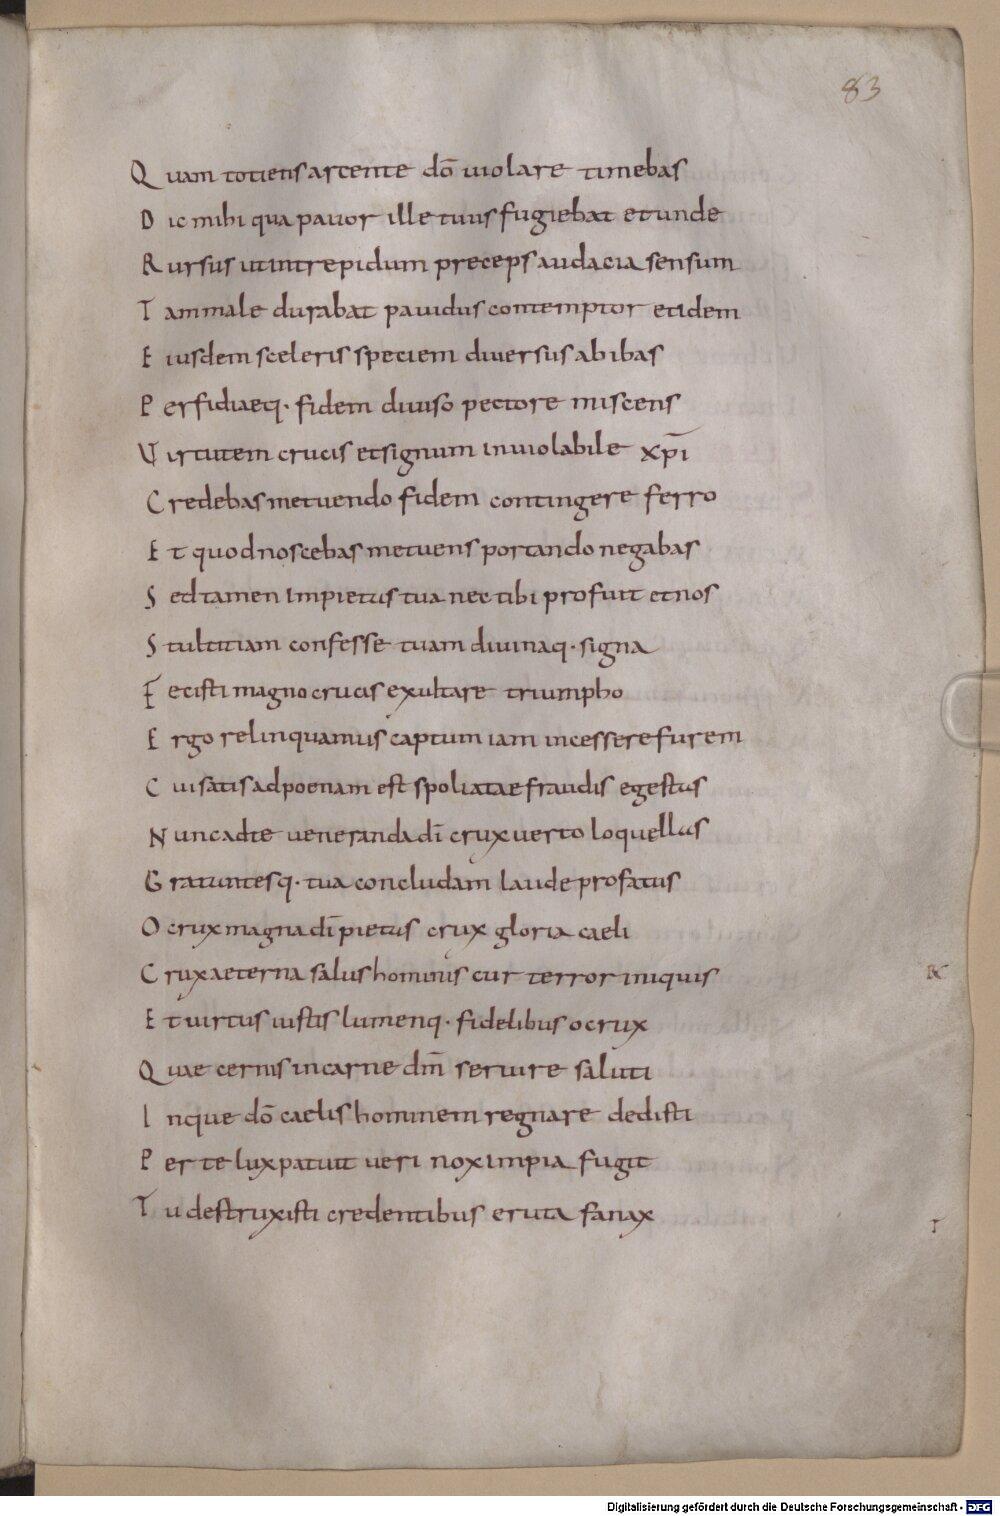 83
Quam totiens arcente dō uiolare timebas
Dic mihi qua pauor ille tuus fugiebat et unde
Rursus ut intrepidum preceps audacia sensum
Tam male durabat pauidus contemptor et idem
Eiusdem sceleris speciem diuersus ab ibas
Perfidiaeq· fidem diuiso pectore miscens
Virtutem crucis et signum inuiolabile xp̄i
Credebas metuendo fidem contingere ferro
Et quod noscebas metuens portando negabas
Sed tamen impietas tua nec tibi profuit et nos
Stultitiam confesse tuam diuinaq· signa
Fecisti magno crucis exultare triumpho
Ergo relinquamus captum iam incessere furem
Cui satis ad poenam est spoliatae fraudis egestas
Nunc ad te ueneranda dī crux uerto loquellas
Gratantesq· tua concludam laude profatus
O crux magna dī pietas crux gloria caeli
Crux aeterna salus hominis cur terror iniquis
Et uirtus iustis lumenq· fidelibus o crux
Quae cernis in carne dm̄ seruire saluti
Inque dō caelis hominem regnare dedisti
Per te lux patuit ueri nox impia fugit
Tu destruxisti credentibus eruta fanax
T
Digitalisierung gefördert durch die Deutsche Forschungsgemeinschaft - DFG